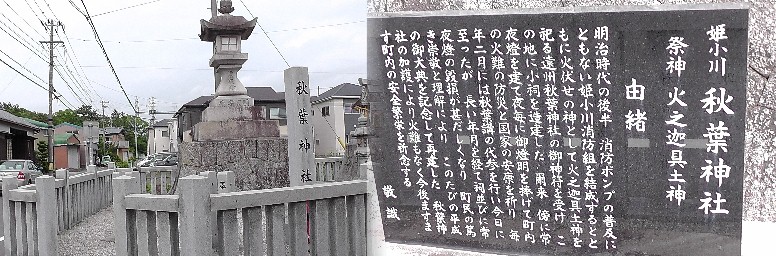 秋葉神社
姫小川 秋葉神社
祭神 火之迦具土神
由緒
明治時代の後半 消防ポンプの普及に
ともない姫小川消防組を結成するとと
もに火伏せの神として火之迦具土神を
祀る遠州秋葉神社の御神符を受け こ
の地に小祠を造建した 爾来 傍に常
夜燈を建て夜毎に御燈明を捧げて町内
の火難の防災と国家の安泰を祈り 毎
年二月には秋葉講の代参を行い今日に
至ったが 長い年月を経て祠並びに常
夜燈の毀損が甚だしくなり 町民の篤
き崇敬と理解により このたびの平成
の御大典を記念して再建した 秋葉神
社の加護により火難もなく今後ますま
す町内の安全繁栄を祈念する
敬識